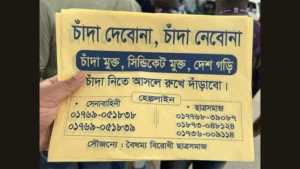 চাঁদা দেবোনা, চাঁদা নেবোনা
চাঁদা মুক্ত, সিন্ডিকেট মুক্ত, দেশ গড়ি
চাঁদা নিতে আসলে রুখে দাঁড়াবো।
হেল্পলাইন
সেনাবাহিনী
০১৭৬৯-০৫১৮৩৮
০১৭৬৯-০৫১৮৩৯
ছাত্রসমাজ
০১৮৭৩-০৪৮১২৪
০১৭৩৬-০০৯১১৪
সৌজন্যে : বৈষম্য বিরোধী ছাত্রসমাজ